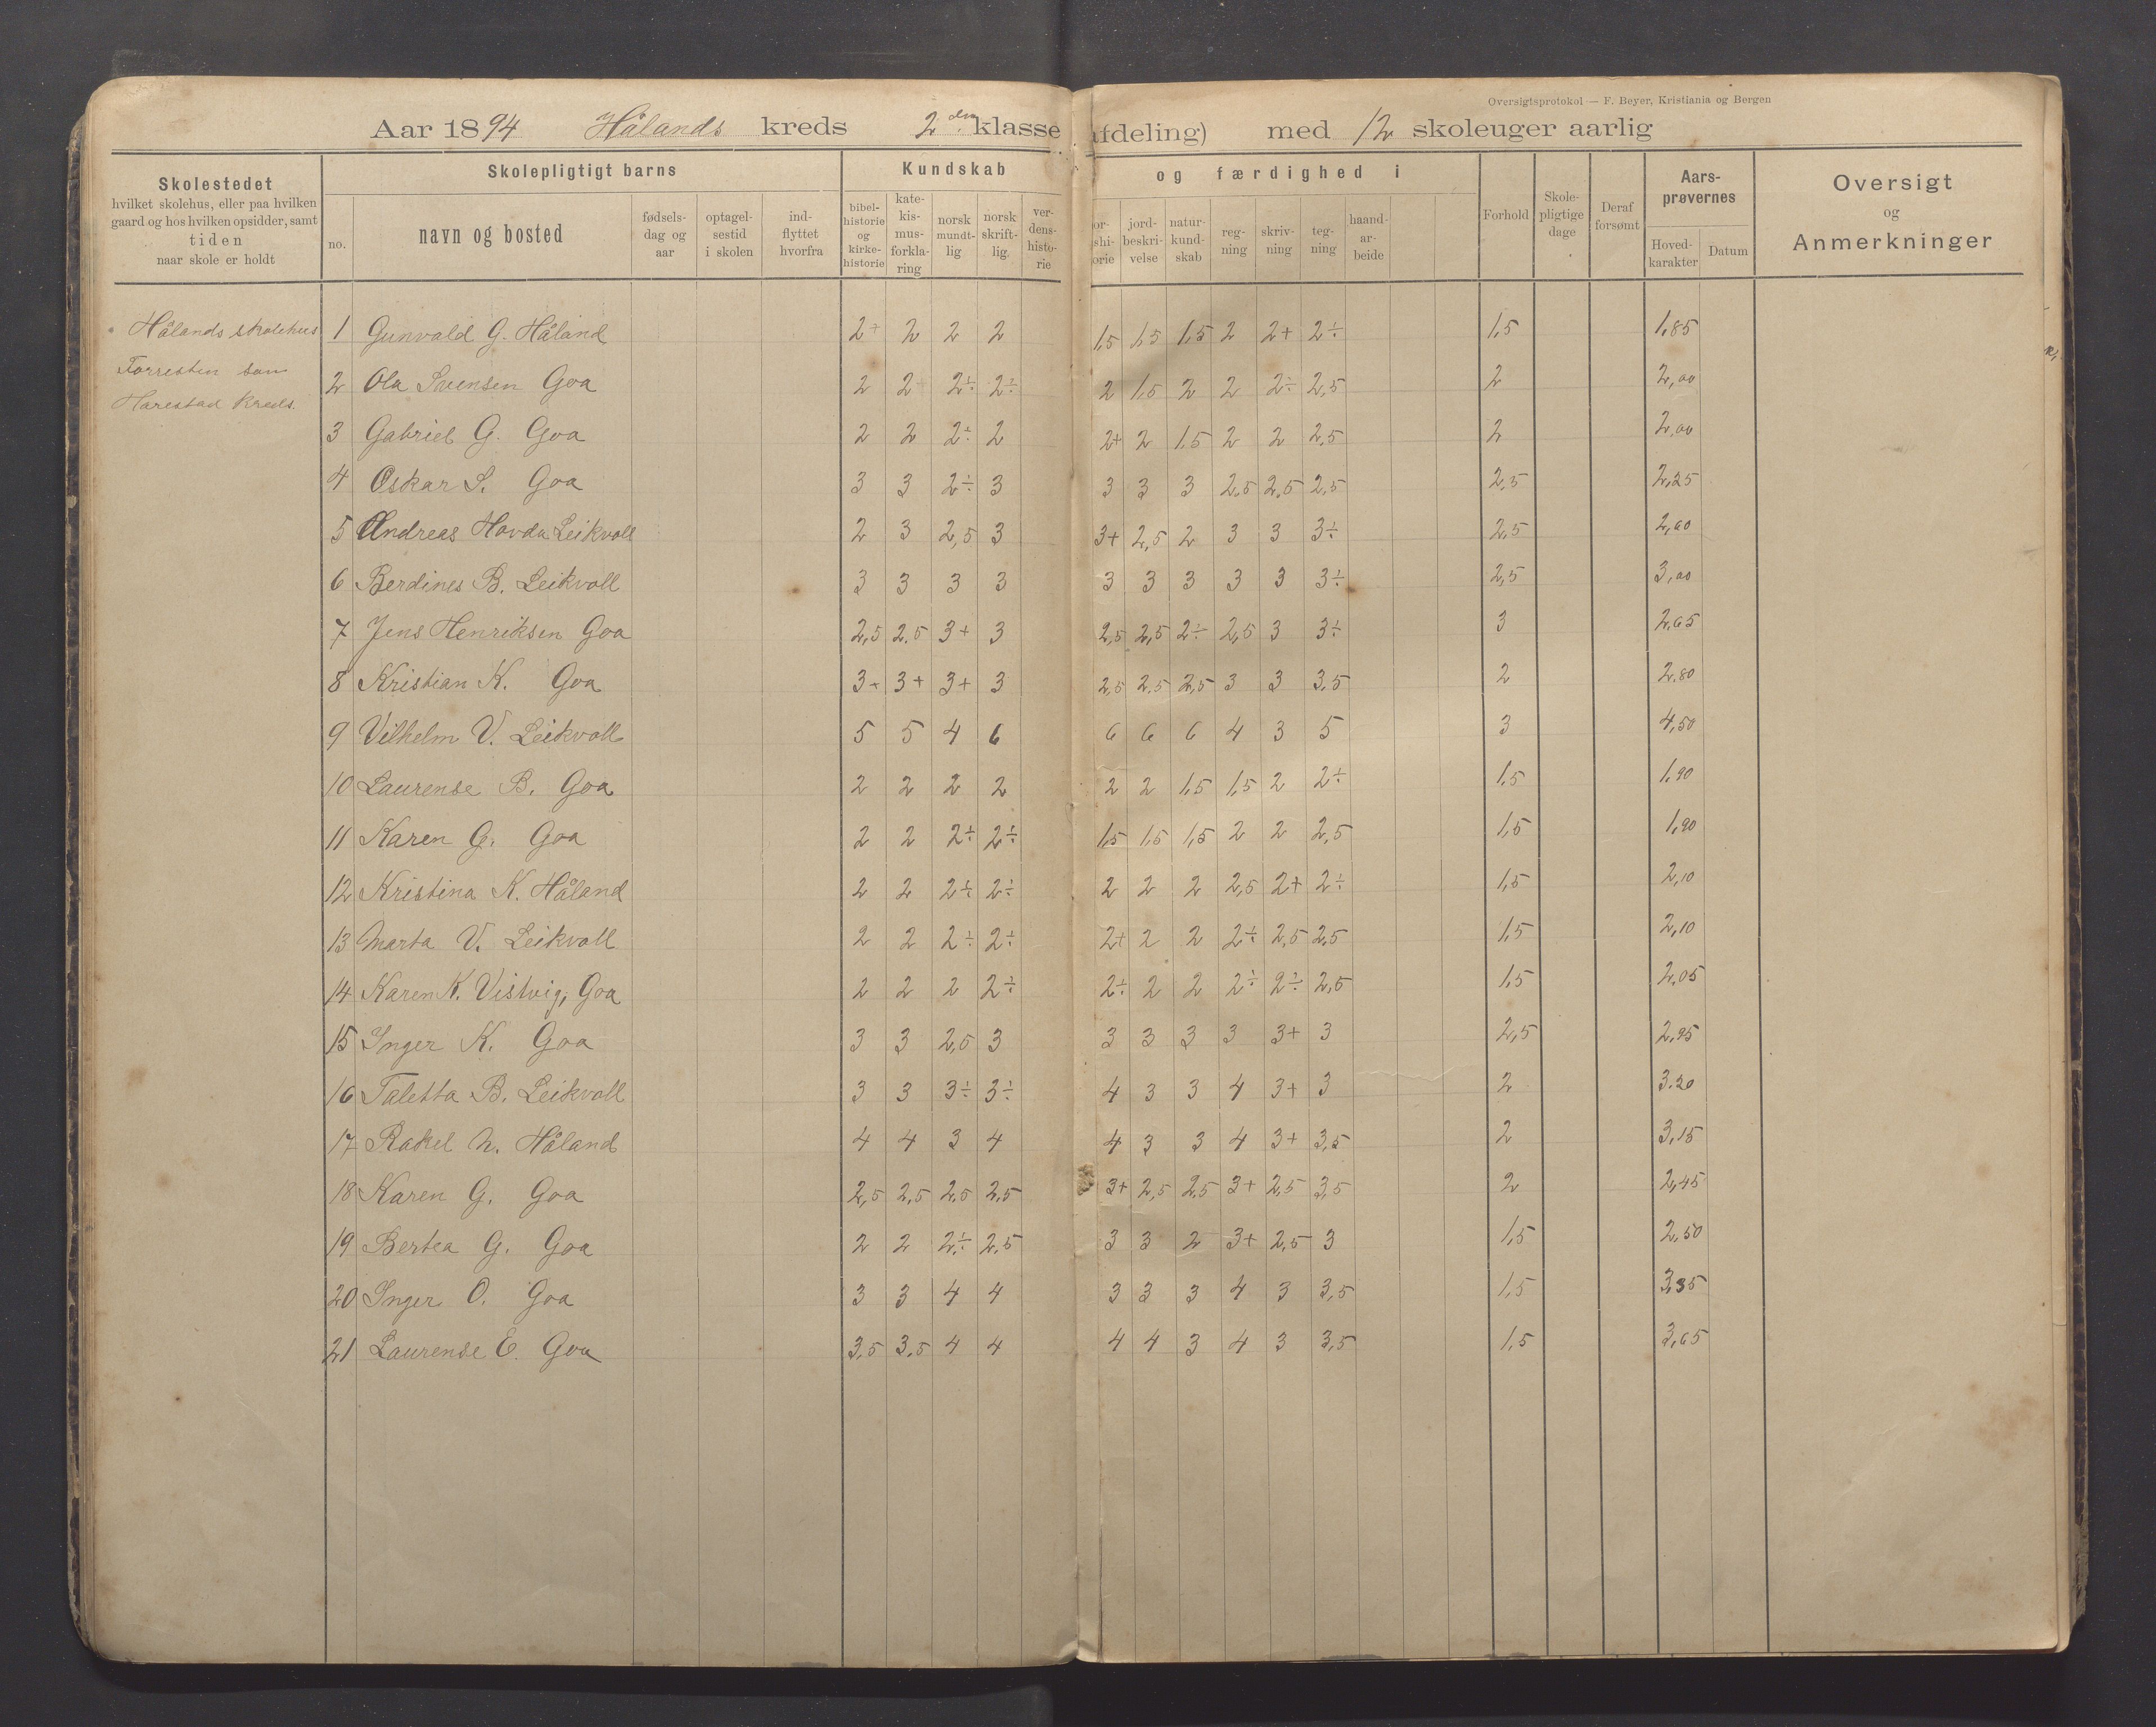 Oversigtsprotokol — F. Beyer, Kristiania og Bergen
Aar 1894 Hålands kreds 2den klasse (afdeling) med 12 skoleuger aarlig
Skolestedet
hvilket skolehus, eller paa hvilken
gaard og hos hvilken opsidder, samt
tiden
naar skole er holdt
Skolepligtigt barns
no.
navn og bosted
fødsels-
dag og
aar
optagel-
sestid
i skolen
ind-
flyttet
hvorfra
Kundskab og færdighed i
bibel-
historie
og
kirke-
historie
kate-
kis-
mus-
forkla-
ring
norsk
mundt-
lig
norsk
skrift-
lig
ver-
dens-
histo-
rie
or-
shi-
orie
jord-
beskri-
velse
natur-
kund-
skab
reg-
ning
skriv-
ning
teg-
ning
haand-
ar-
beide
Forhold
Skole-
pligtige
dage
Deraf
forsømt
Aars-
prøvernes
Hoved-
karakter
Datum
Oversigt
og
Anmerkninger
Hålands skolehus
Forresten som
Harestad kreds.
1 Gunvald G. Håland 2+ 2 2 2 1,5 1,5 1,5 2 2+ 2÷ 1,5 1,85
2 Ola Svensen Goa 2 2 2÷ 2÷ 2 1,5 2 2 2÷ 2,5 2 2,00
3 Gabriel G. Goa 2 2 2÷ 2 2+ 2 1,5 2 2 2,5 2 2,00
4 Oskar S. Goa 3 3 2÷ 3 3 3 3 2,5 2,5 2,5 2,5 2,25
5 Andreas Hovda Leikvoll 2 3 2,5 3 3+ 2,5 2 3 3 3÷ 2,5 2,60
6 Berdines B. Leikvoll 3 3 3 3 3 3 3 3 3 3÷ 2,5 3,00
7 Jens Henriksen Goa 2,5 2,5 3+ 3 2,5 2,5 2÷ 2,5 3 3÷ 3 2,65
8 Kristian K. Goa 3+ 3+ 3+ 3 2,5 2,5 2,5 3 3 3,5 2 2,80
9 Vilhelm V. Leikvoll 5 5 4 6 6 6 6 4 3 5 3 4,50
10 Laurense B. Goa 2 2 2 2 2 2 1,5 1,5 2 2÷ 1,5 1,90
11 Karen G. Goa 2 2 2÷ 2÷ 1,5 1,5 1,5 2 2 2,5 1,5 1,90
12 Kristina K. Håland 2 2 2÷ 2÷ 2 2 2 2,5 2+ 2÷ 1,5 2,10
13 Marta V. Leikvoll 2 2 2÷ 2÷ 2+ 2 2 2÷ 2,5 2,5 1,5 2,10
14 Karen K. Vistvig, Goa 2 2 2 2÷ 2÷ 2 2 2÷ 2÷ 2,5 1,5 2,05
15 Inger K. Goa 3 3 2,5 3 3 3 3 3 3+ 3 2,5 2,95
16 Taletta B. Leikvoll 3 3 3÷ 3÷ 4 3 3 4 3+ 3 2 3.20
17 Rakel N. Håland 4 4 3 4 4 3 3 4 3+ 3,5 2 3,15
18 Karen G. Goa 2,5 2,5 2,5 2,5 3+ 2,5 2,5 3+ 2,5 3,5 2 2,45
19 Bertea G. Goa 2 2 2÷ 2,5 3 3 2 3+ 2,5 3 1,5 2,50
20 Inger O. Goa 3 3 4 4 3 3 3 4 3 3,5 1,5 3,35
21 Laurense E. Goa 3,5 3,5 4 4 4 4 3 4 3 3,5 1,5 3,65